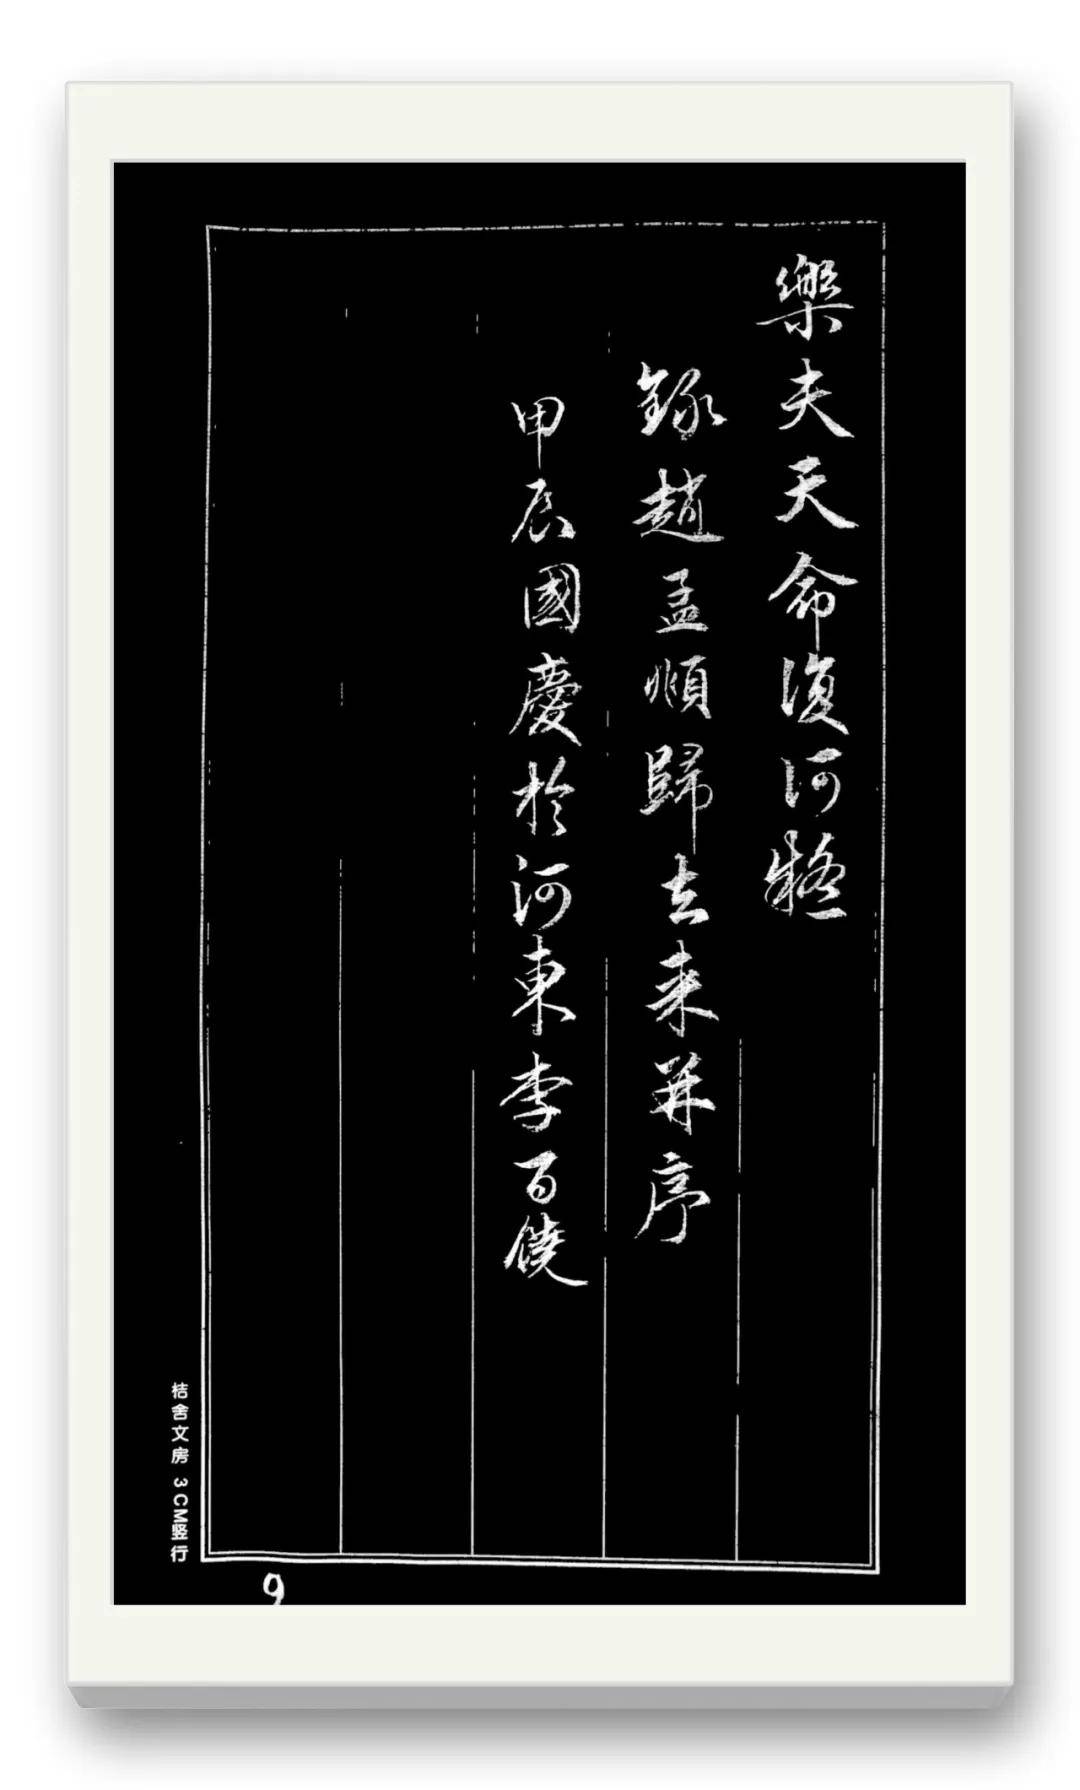 樂夫天命復何疑
錄趙孟頫歸去来并序
甲辰國慶於河東李百饒
桔舍文房 3CM竖行
9